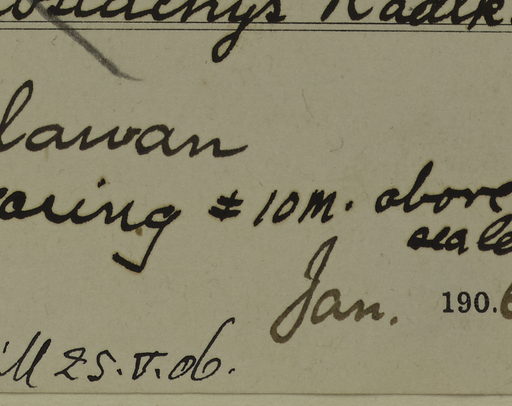 Radlk.
lawan
aring ± 10 M. above
sea le
Jan. 190.6
ill 25.V.06.